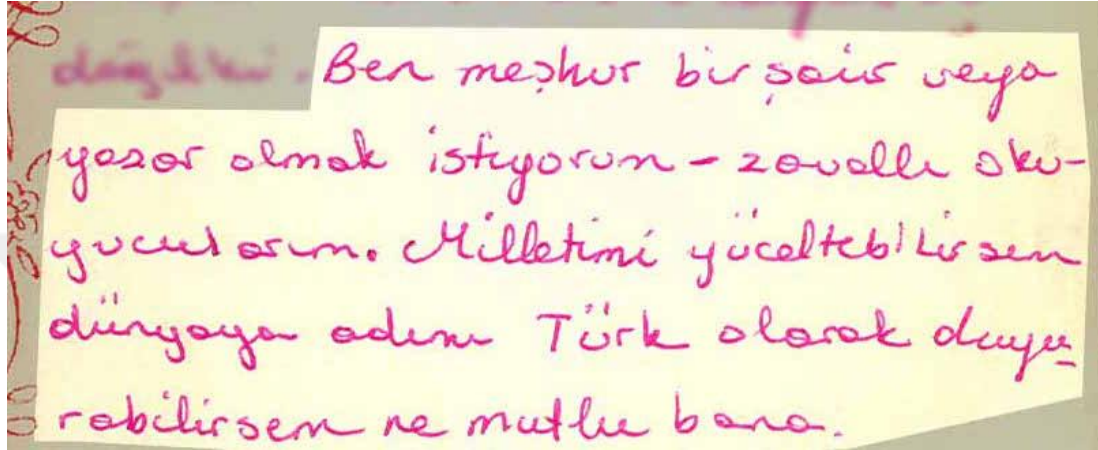 Ben meşhur bir şair veya
yazar olmak istiyorum - zavallı oku-
yucularım. Milletimi yüceltebilirsem
dünyaya adımı Türk olarak duyu-
rabilirsem ne mutlu bana.